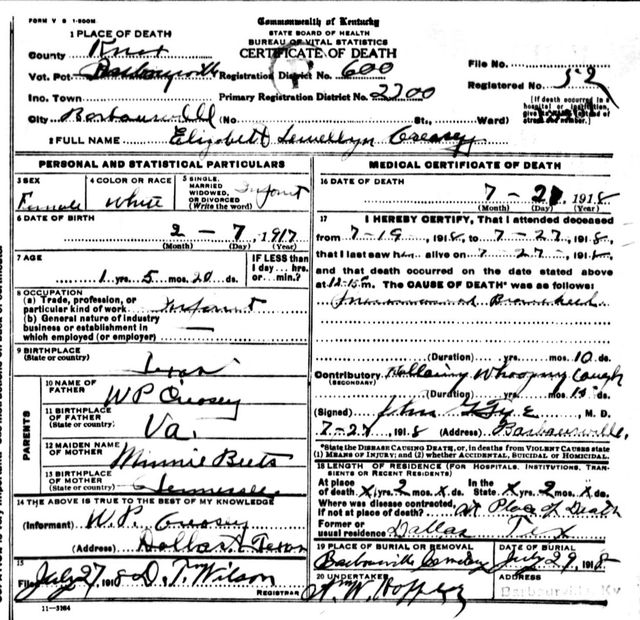 FORM V S 1-500M
Commonwealth of Kentucky
STATE BOARD OF HEALTH
BUREAU OF VITAL STATISTICS
CERTIFICATE OF DEATH
1 PLACE OF DEATH
County Knox
Vot. Pct Barbourville Registration District No. 600 File No.
Inc. Town Primary Registration District No. 2700 Registered No. 52
City Barbourville (No St., Ward)
[If death occurred in a hospital or institution, give its NAME instead of street and number.]
2 FULL NAME Elizabeth Lewellyn Creasey
PERSONAL AND STATISTICAL PARTICULARS
3 SEX Female
4 COLOR OR RACE White
5 SINGLE, MARRIED WIDOWED, OR DIVORCED (Write the word) Infant
6 DATE OF BIRTH
2 - 7, 1917
(Month) (Day) (Year)
7 AGE
1 yrs 5 mos 20 ds.
IF LESS than 1 day... hrs. or min.?
8 OCCUPATION
(a) Trade, profession, or particular kind of work Infant
(b) General nature of industry business or establishment in which employed (or employer) —
9 BIRTHPLACE (State or country) Texas
PARENTS
10 NAME OF FATHER W P Creasey
11 BIRTHPLACE OF FATHER (State or country) Va.
12 MAIDEN NAME OF MOTHER Minnie Beets
13 BIRTHPLACE OF MOTHER (State or country) Tennessee
14 THE ABOVE IS TRUE TO THE BEST OF MY KNOWLEDGE
(Informant) W. P. Creasey
(Address) Dallas Texas
15
Filed July 27 1918 D. T. Wilson
11-3184
MEDICAL CERTIFICATE OF DEATH
16 DATE OF DEATH
7 - 27, 1918
(Month) (Day) (Year)
17 I HEREBY CERTIFY, That I attended deceased
from 7-19, 1918, to 7-27, 1918,
that I last saw her alive on 7 27, 1918
and that death occurred on the date stated above
at 12-15 m. The CAUSE OF DEATH* was as follows:
(Duration) yrs. mos. 10 ds.
Contributory Following Whooping Cough
(SECONDARY)
(Duration) yrs. mos. ds.
(Signed) M. D.
7-27, 1918 (Address) Barbourville,
*State the DISEASE CAUSING DEATH, or, in deaths from VIOLENT CAUSES state (1) MEANS OF INJURY; and (2) whether ACCIDENTAL, SUICIDAL or HOMICIDAL.
18 LENGTH OF RESIDENCE (FOR HOSPITALS, INSTITUTIONS, TRANSIENTS OR RECENT RESIDENTS)
At place of death X yrs. 2 mos. X ds. In the State X yrs. 2 mos. X ds.
Where was disease contracted, if not at place of death? At Place of Death
Former or usual residence Dallas Tex
19 PLACE OF BURIAL OR REMOVAL Barbourville Cemetery
DATE OF BURIAL July 29, 1918
20 UNDERTAKER
ADDRESS Barbourville, Ky